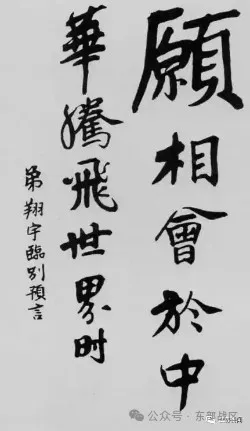 願相會於中
華騰飛世界时
弟翔宇臨別預言
公众号·东部战区